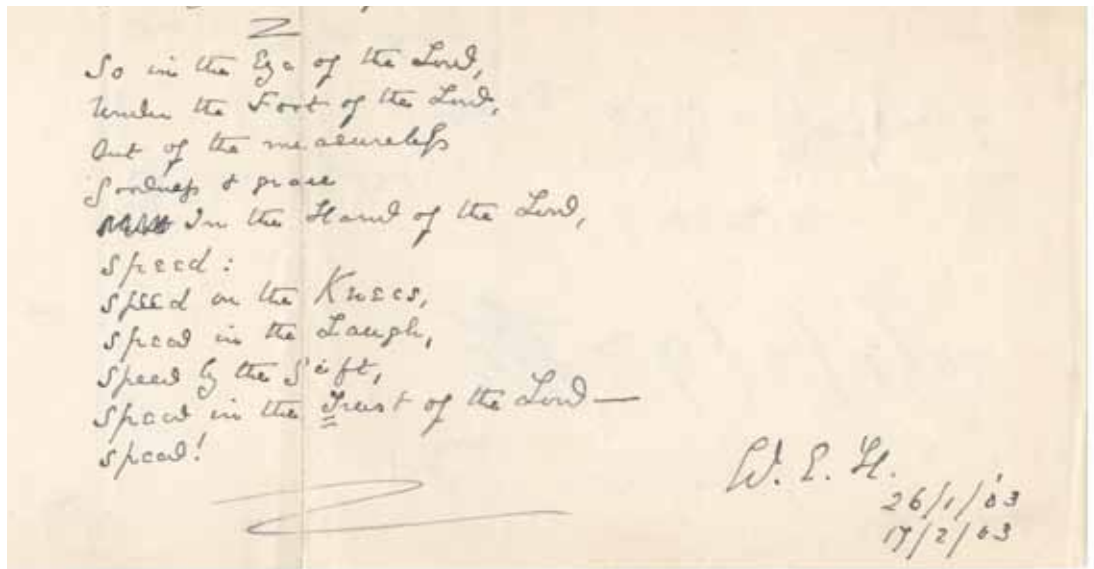 So in the Eye of the Lord,
Under the Foot of the Lord,
Out of the measureless
Goodness & grace
In the Hand of the Lord,
Speed:
Speed on the Knees,
Speed in the Laugh,
Speed by the Gift,
Speed in the Trust of the Lord —
Speed!
W. E. H.
26/1/03
17/2/03